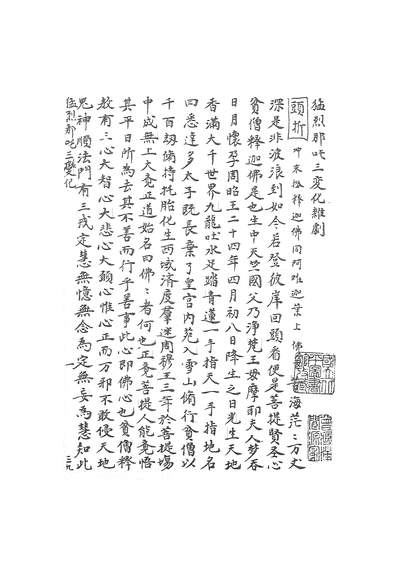 猛烈那吒三變化雜劇
頭折 冲末扮釋迦佛同阿难迦葉上佛 海茫〻万丈
深是非波浪到如今若登彼岸回頭看便是菩提賢圣心
貧僧釋迦佛是也生中天竺國父乃淨梵王母摩耶夫人梦吞
日月懷孕周昭王二十四年四月初八日降生之日光生天地
香滿大千世界九龍吐水足踏青蓮一手指天一手指地名
四悉達多太子既長棄了皇宮內苑入雪山脩行貧僧以
千百刼脩持托胎化生西域濟度羣迷周穆王三年於菩提場
中成無上大竟正道始名曰佛〻者何也正竟菩提人能竟悟
其平日所為去其不善而行乎善事此心即佛心也貧僧釋
教有三心大智心大悲心大願心惟心正而万邪不敢侵天地
鬼神順法門有三戒定慧無憶無念為定無妄為慧知此
猛烈那吒三變化 一